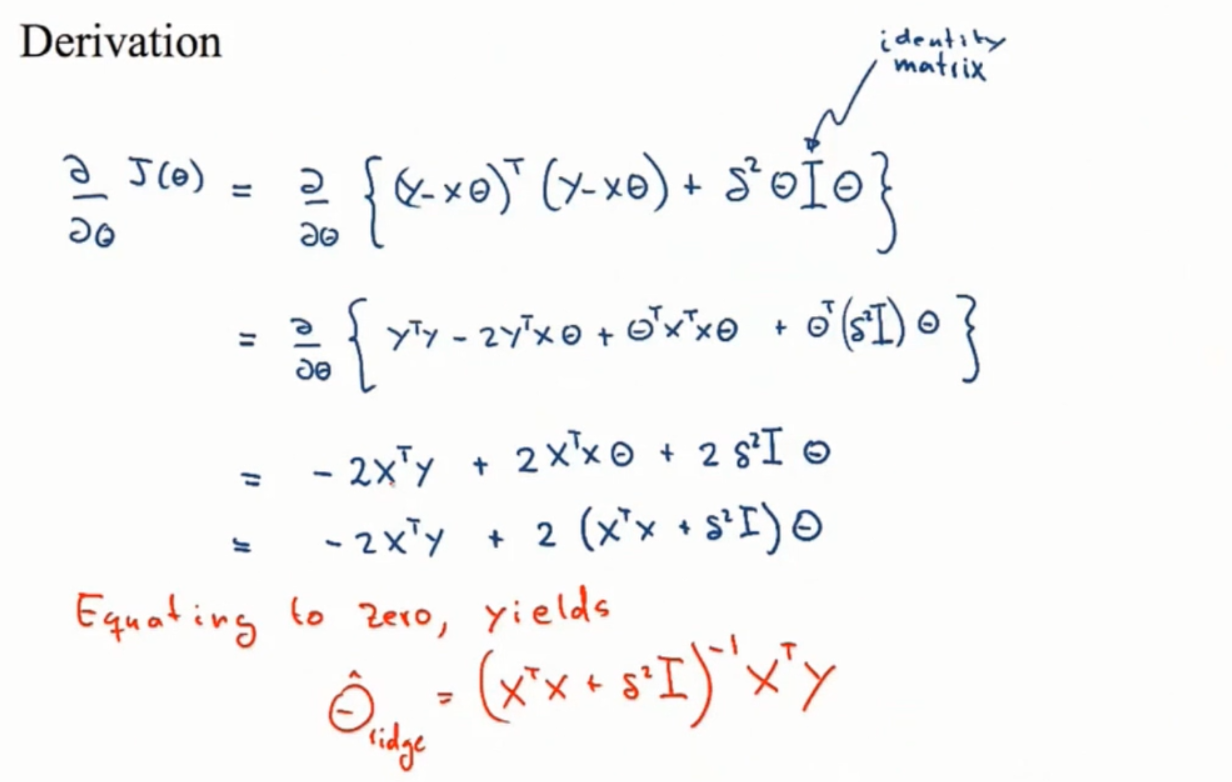 Derivation
identity
matrix
∂/∂θ J(θ) = ∂/∂θ { (y-xθ)ᵀ (y-xθ) + δ² θ I θ }
= ∂/∂θ { yᵀy - 2yᵀxθ + θᵀxᵀxθ + θᵀ(δ²I) θ }
= - 2xᵀy + 2xᵀxθ + 2 δ²I θ
= - 2xᵀy + 2 (xᵀx + δ²I) θ
Equating to zero, yields
θ̂ridge = (xᵀx + δ²I)⁻¹ xᵀy